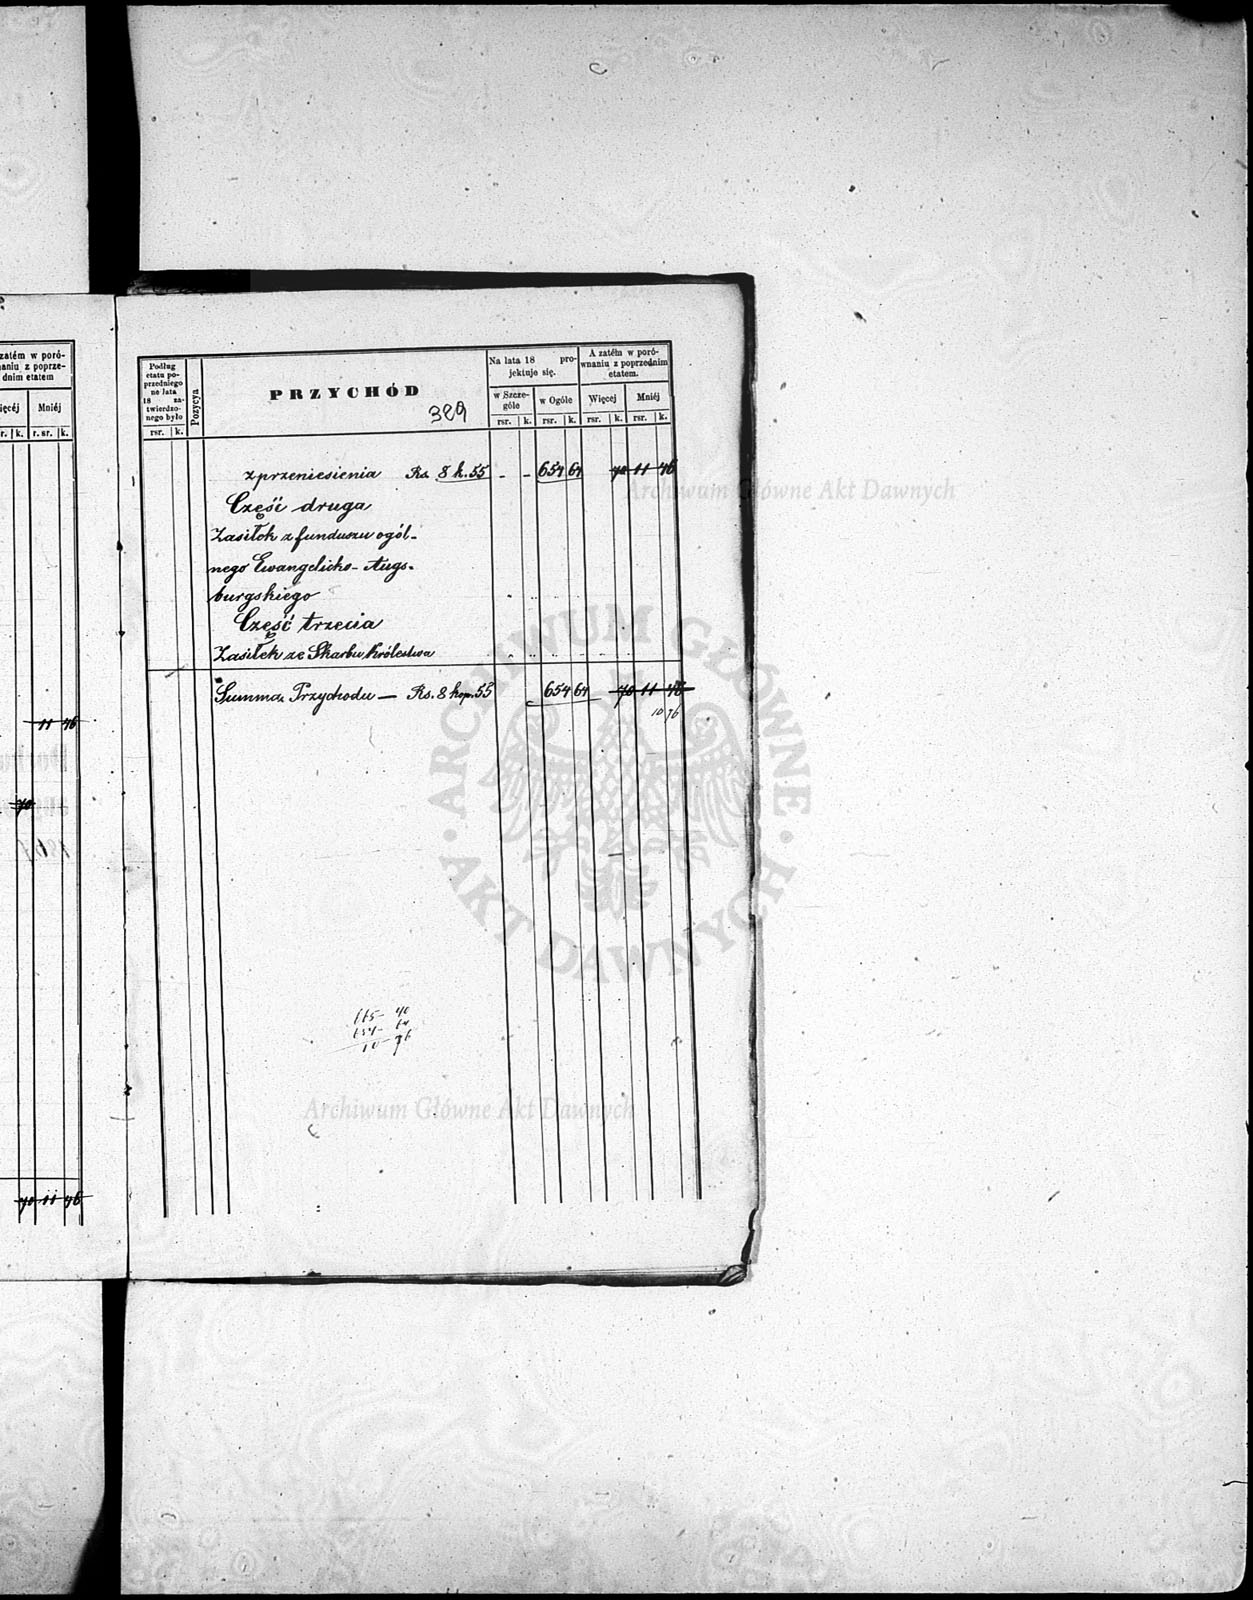 zatém w poró-
wnaniu z poprze-
dnim etatem
ięcéj Mniéj
r. k. r. sr. k.
11 46
70
70 11 46
Podług
etatu po-
przedniego
na lata
18 za-
twierdzo-
nego było
rsr. k.
Pozycya
PRZYCHÓD
389
Na lata 18 pro-
jektuje się.
w Szcze-
góle
w Ogóle
rsr. k. rsr. k.
A zatém w poró-
wnaniu z poprzednim
etatem.
Więcej Mniéj
rsr. k. rsr. k.
z przeniesienia Rs. 8 k. 55 - - 654 64 70 11 46
Część druga
Zasiłek z funduszu ogól-
nego Ewangelicko-Augs-
burgskiego
Część trzecia
Zasiłek ze Skarbu Królestwa
Summa Przychodu — Rs. 8 kop. 55 654 64 70 11 46
10 76
665- 40
654- 64
10- 76
Archiwum Główne Akt Dawnych
ARCHIWUM GŁÓWNE
· AKT DAWNYCH ·
Archiwum Główne Akt Dawnych